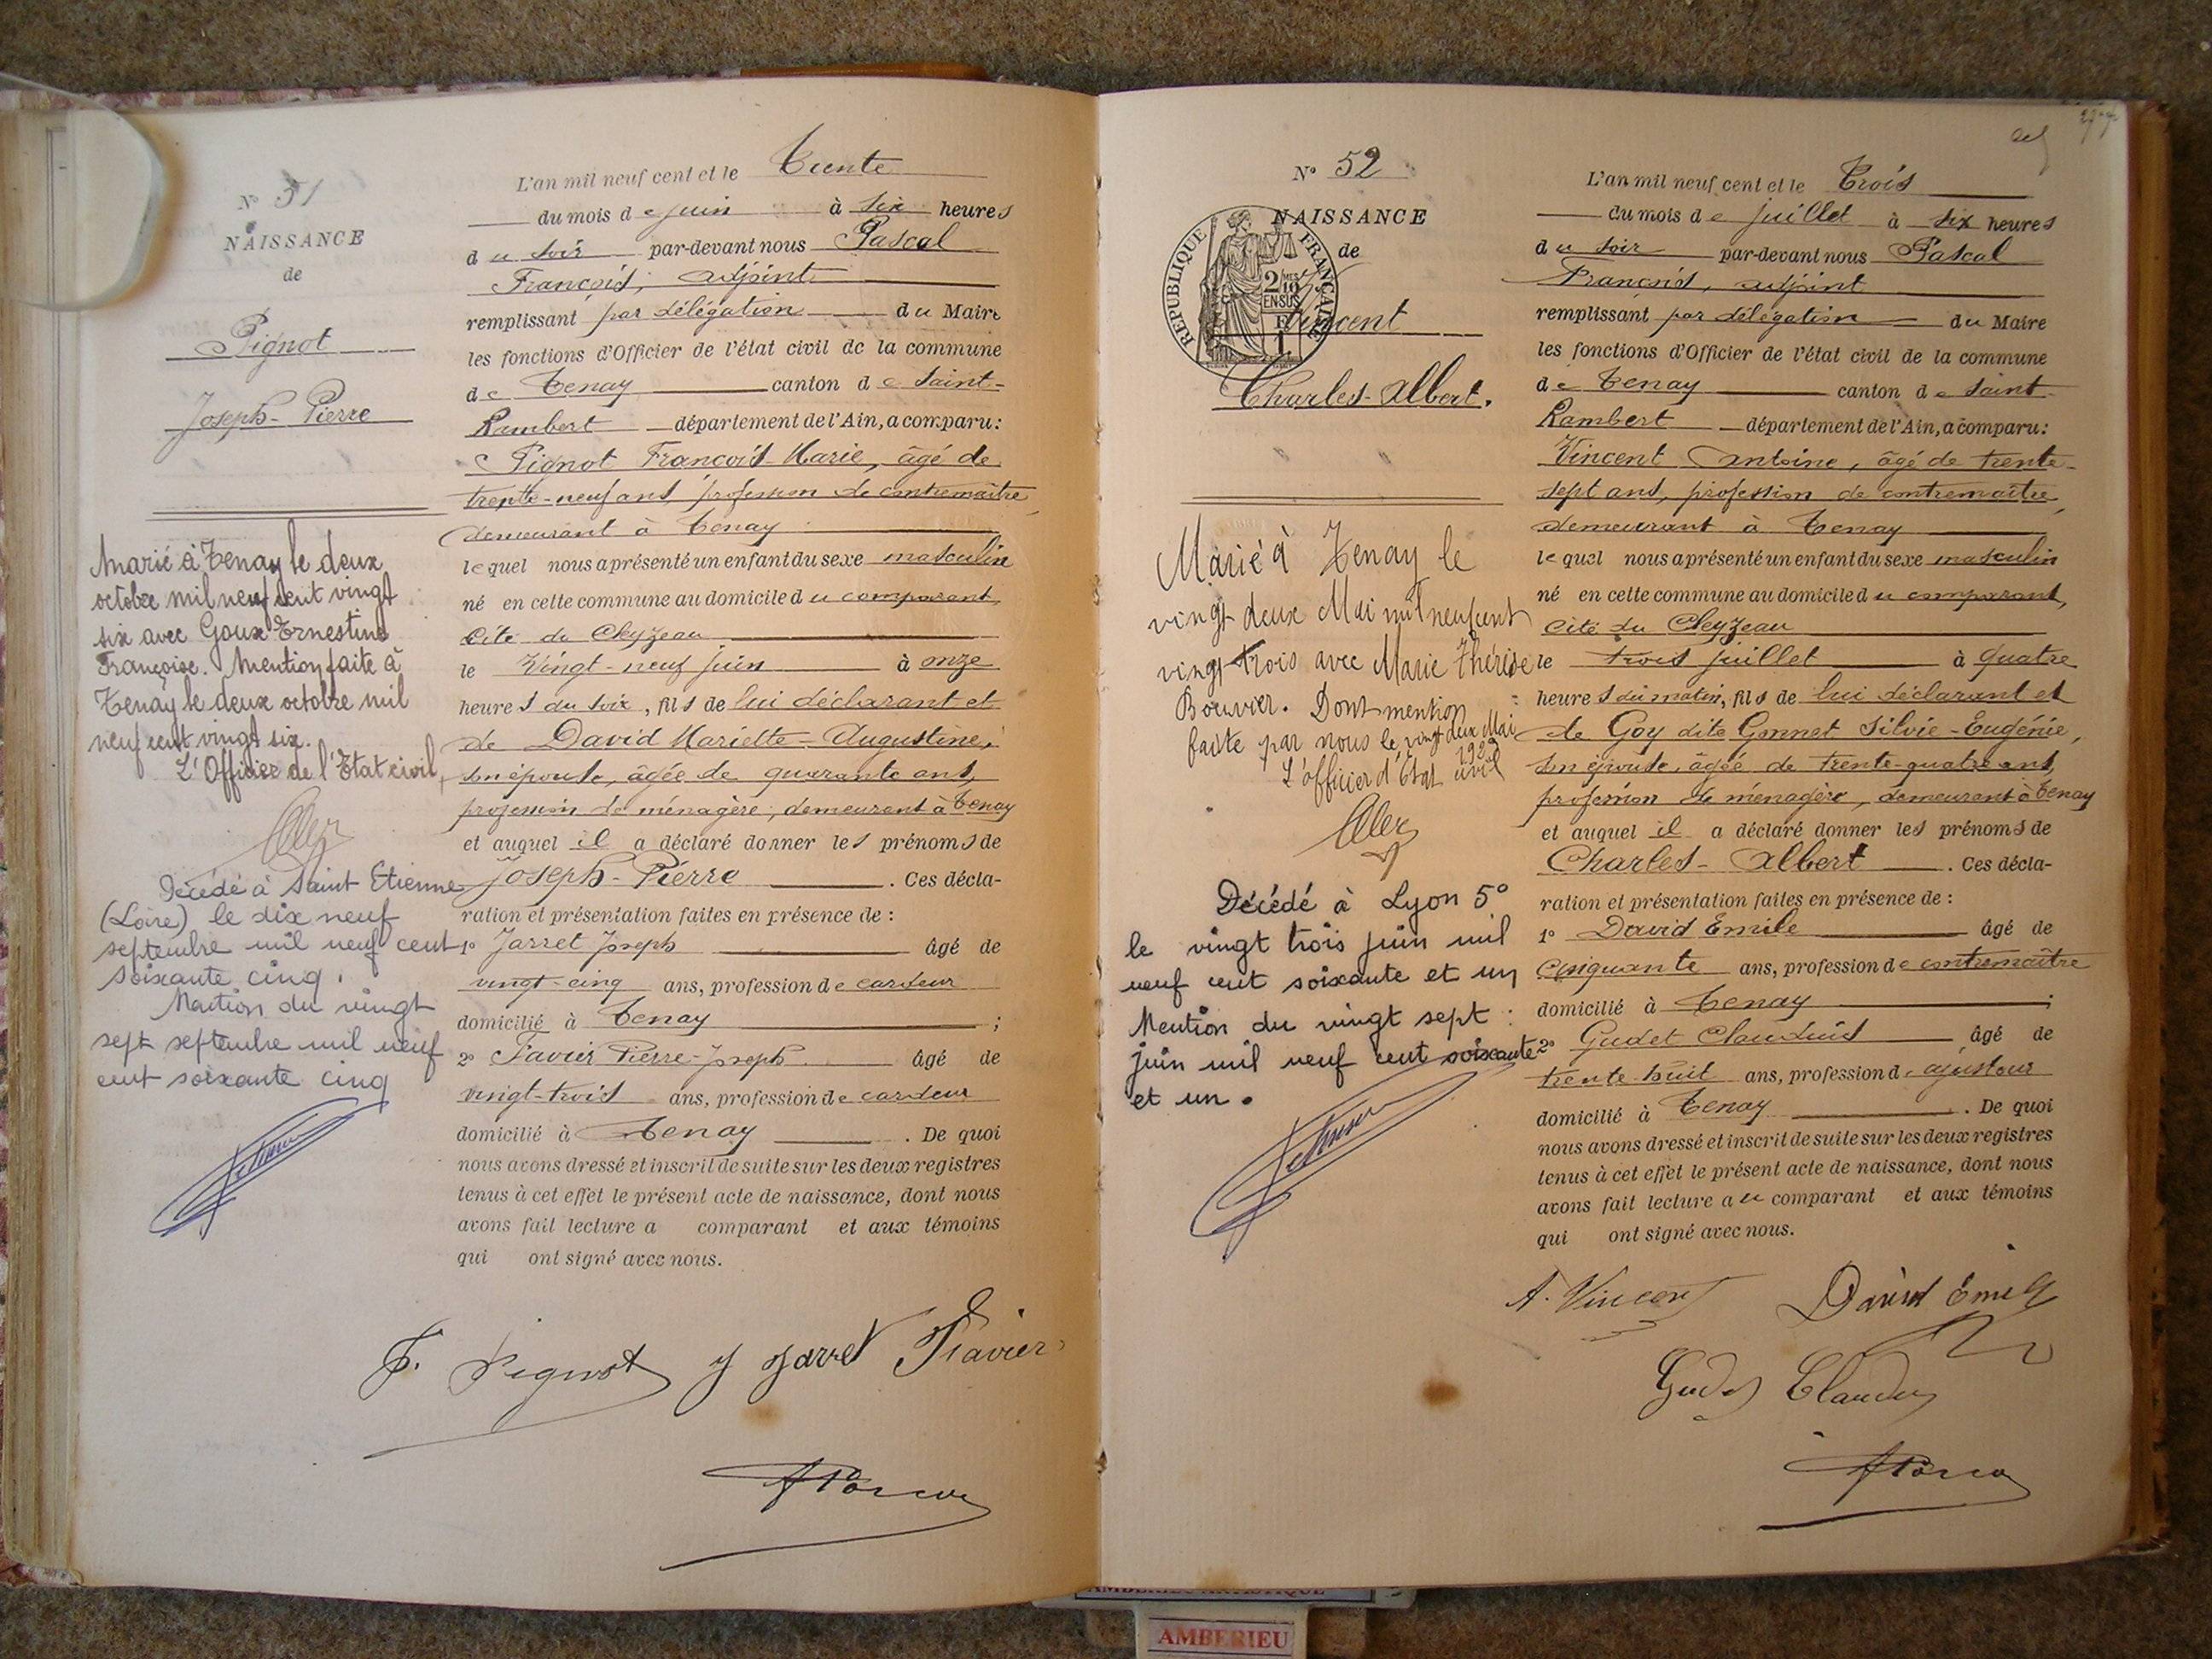 N° 51
NAISSANCE
de
Pignot
Joseph-Pierre
Marié à Tenay le deux
octobre mil neuf cent vingt
six avec Goux Ernestine
Françoise. Mention faite à
Tenay le deux octobre mil
neuf cent vingt six.
L'Officier de l'Etat civil,
Décédé à Saint Etienne
(Loire) le dix neuf
septembre mil neuf cent
soixante cinq.
Mention du vingt
sept septembre mil neuf
cent soixante cinq
L'an mil neuf cent et le Trente
du mois de juin à six heures
du soir par-devant nous Pascal
François, adjoint
remplissant par délégation du Maire
les fonctions d'Officier de l'état civil de la commune
de Tenay canton de Saint-
Rambert département de l'Ain, a comparu:
Pignot François-Marie, âgé de
trente-neuf ans, profession de contremaître,
demeurant à Tenay
lequel nous a présenté un enfant du sexe masculin
né en cette commune au domicile du comparant,
Cité du Cleyzeau
le Vingt-neuf juin à onze
heures du soir, fils de lui déclarant et
de David Mariette-Augustine,
son épouse, âgée de quarante ans,
profession de ménagère, demeurant à Tenay
et auquel il a déclaré donner les prénoms de
Joseph-Pierre. Ces décla-
ration et présentation faites en présence de :
1° Jarret Joseph âgé de
vingt-cinq ans, profession de cardeur
domicilié à Tenay ;
2° Favier Pierre-Joseph âgé de
vingt-trois ans, profession de cardeur
domicilié à Tenay. De quoi
nous avons dressé et inscrit de suite sur les deux registres
tenus à cet effet le présent acte de naissance, dont nous
avons fait lecture a comparant et aux témoins
qui ont signé avec nous.
F. Pignot J Jarret Favier
N° 52
NAISSANCE
de
Vincent
Charles-Albert.
REPUBLIQUE FRANÇAISE
2/10 EN SUS
Marié à Tenay le
vingt deux Mai mil neuf cent
vingt trois avec Marie Thérèse
Bouvier. Dont mention
faite par nous le vingt deux Mai
1923
L'officier d'Etat civil
Décédé à Lyon 5°
le vingt trois juin mil
neuf cent soixante et un
Mention du vingt sept
juin mil neuf cent soixante
et un.
L'an mil neuf cent et le Trois
du mois de juillet à six heures
du soir par-devant nous Pascal
François, adjoint
remplissant par délégation du Maire
les fonctions d'Officier de l'état civil de la commune
de Tenay canton de Saint-
Rambert département de l'Ain, a comparu:
Vincent Antoine, âgé de trente-
sept ans, profession de contremaître,
demeurant à Tenay
lequel nous a présenté un enfant du sexe masculin
né en cette commune au domicile du comparant,
Cité du Cleyzeau
le trois juillet à quatre
heures du matin, fils de lui déclarant et
de Goy dite Gonnet Silvie-Eugénie,
son épouse, âgée de trente-quatre ans,
profession de ménagère, demeurant à Tenay
et auquel il a déclaré donner les prénoms de
Charles-Albert. Ces décla-
ration et présentation faites en présence de :
1° David Emile âgé de
cinquante ans, profession de contremaître
domicilié à Tenay ;
2° Gudet Claudius âgé de
trente-huit ans, profession d'ajusteur
domicilié à Tenay. De quoi
nous avons dressé et inscrit de suite sur les deux registres
tenus à cet effet le présent acte de naissance, dont nous
avons fait lecture au comparant et aux témoins
qui ont signé avec nous.
A. Vincent David Emile
AMBERIEU